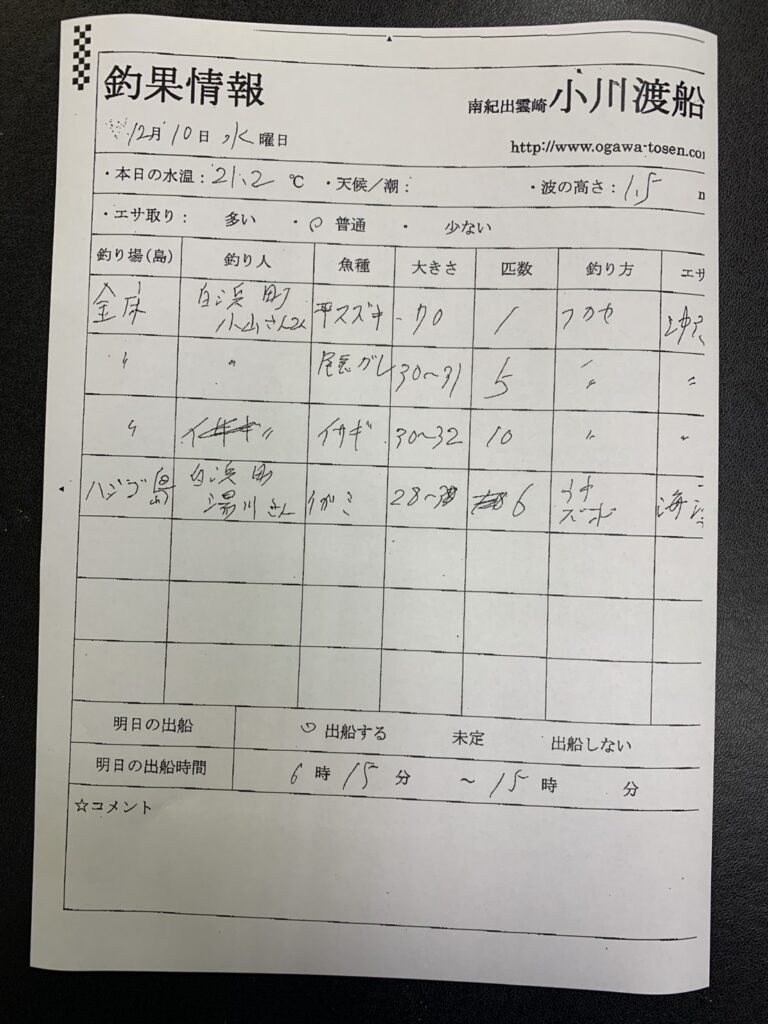 釣果情報
南紀出雲崎 小川渡船
12月10日 水曜日
http://www.ogawa-tosen.co
・本日の水温：21.2 ℃ ・天候／潮： ・波の高さ：1.5
・エサ取り： 多い ・ 普通 ・ 少ない
釣り場(島) 釣り人 魚種 大きさ 匹数 釣り方 エサ
金床 白浜町 小山さん 平スズキ 70 1 フカセ
〃 〃 尾長グレ 30～31 5 〃 〃
〃 〃 イサギ 30～32 10 〃 〃
ハジゴ島 白浜町 湯川さん イガミ 28～ 6 ズボ 海
明日の出船 出船する 未定 出船しない
明日の出船時間 6時15分 ～15時 分
☆コメント